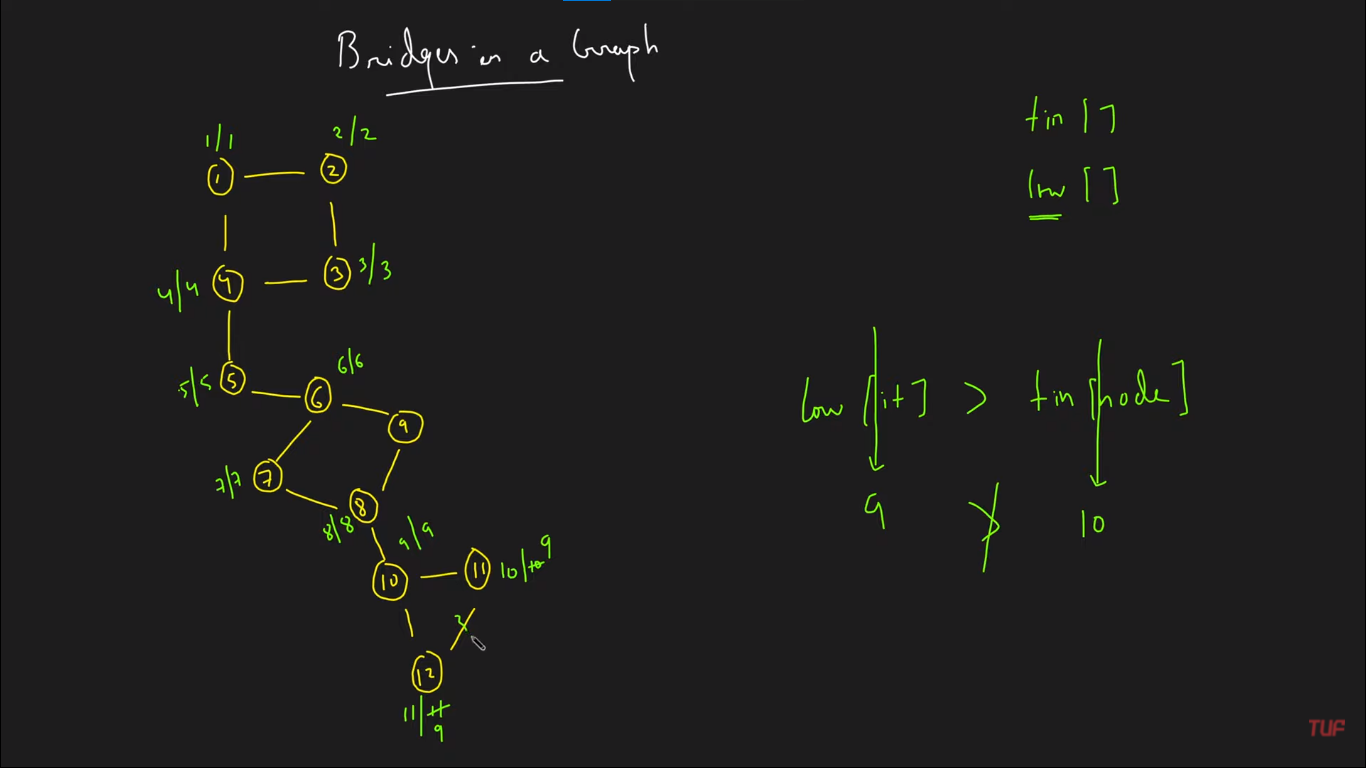 Bridges in a Graph
tin [ ]
low [ ]
1/1
2/2
1
2
4/4
4
3
3/3
5/5
5
6/6
6
9
7/7
7
8
8/8
9/9
10
11
10/10 9
12
11/11
9
low [it] > tin [node]
9 > 10
TUF